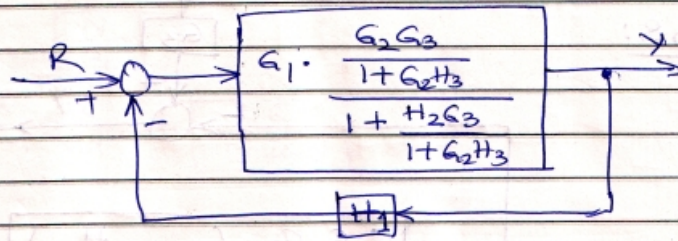 R
+
−
G₁ · (G₂G₃ / (1 + G₂H₃)) / (1 + H₂G₃ / (1 + G₂H₃))
Y
H₁